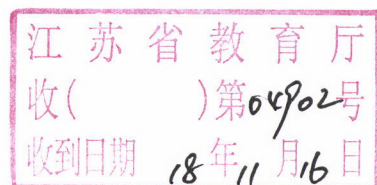 江苏省教育厅
收( )第04902号
收到日期 18年11月16日